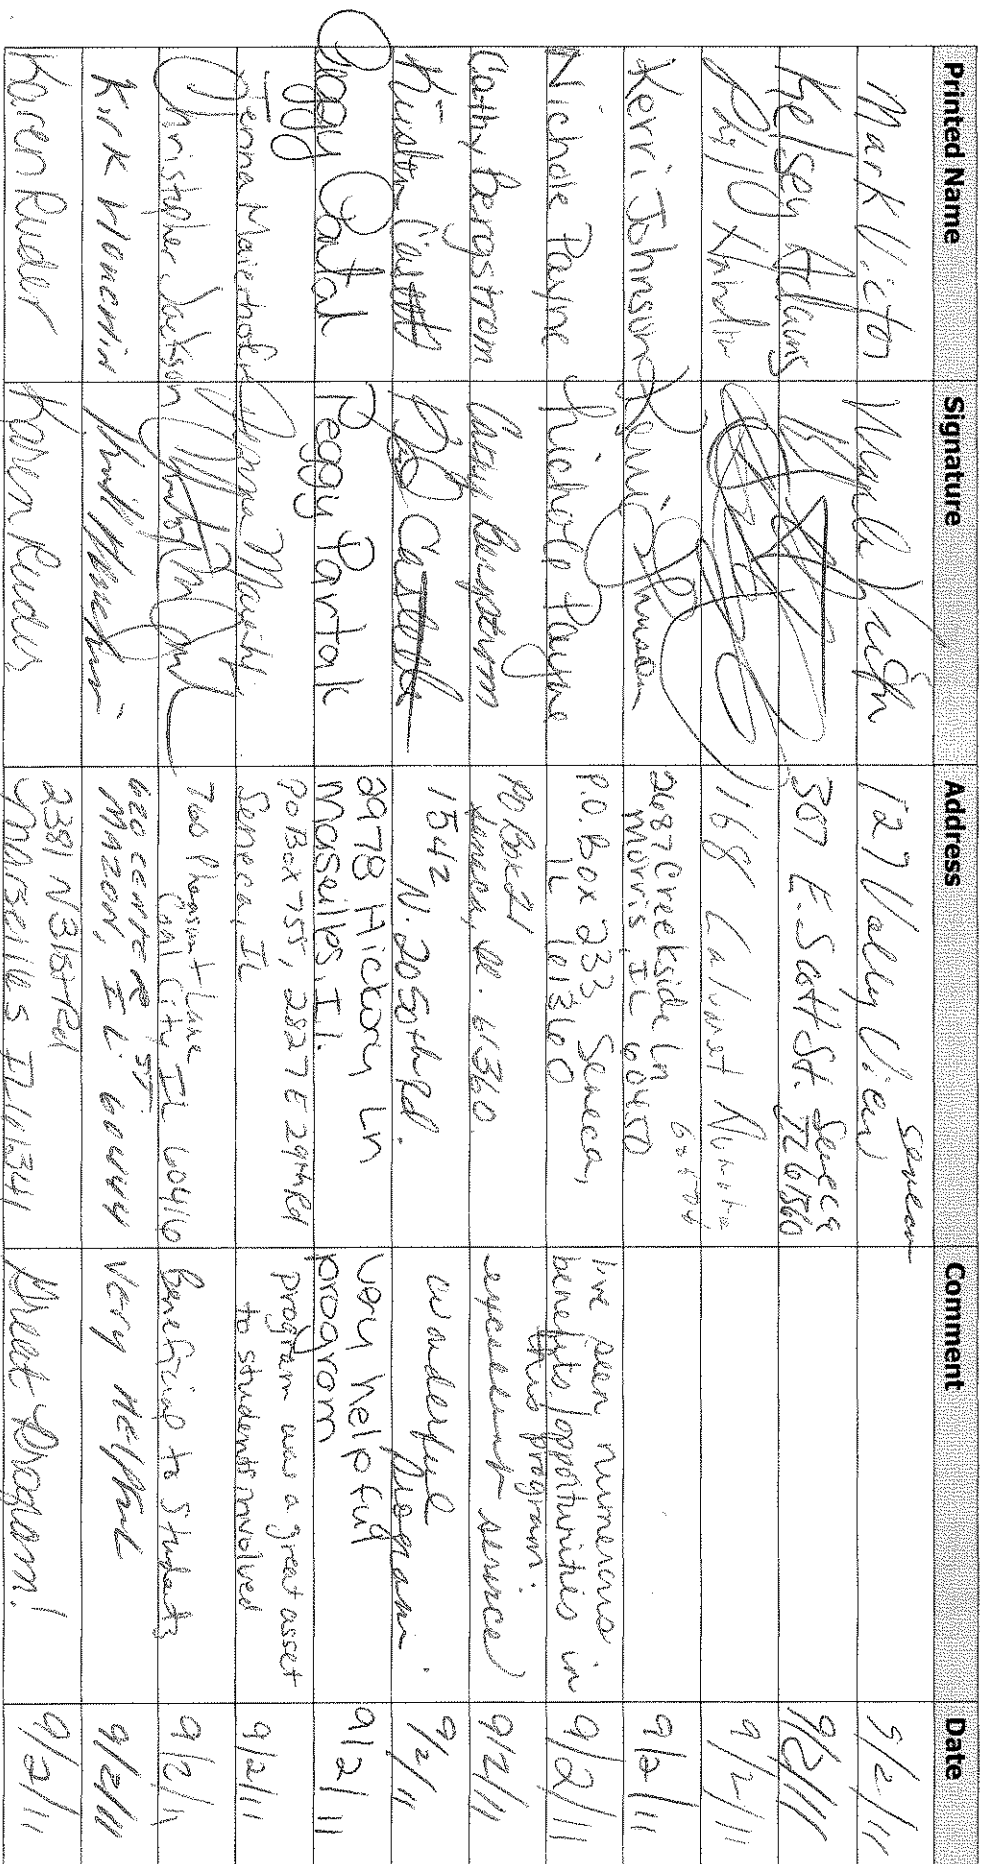 Printed Name Signature Address Comment Date
Mark Victor 127 Vally View Seneca 9/2/11
Kelsey Adams 307 E. Scott St. Seneca IL 61360 9/2/11
168 Calumet 9/2/11
Kerri Johnson Kerri Johnson 2687 Creekside Ln Morris, IL 60450 9/2/11
Nichole Payne Nichole Payne P.O. Box 233, Seneca, IL 61360 I've seen numerous benefits/opportunities in this program. 9/2/11
Cathy Bergstrom Cathy Bergstrom PO Box 21 Seneca, IL. 61360. excellent service 9/2/11
1542 N. 2050th Rd. wonderful program. 9/2/11
Peggy Peggy Partak 2978 Hickory Ln Maseilles, Il. very helpful program 9/2/11
Jenna Maierhofer Jenna PO Box 755, 2827 E 29th Rd Seneca, IL program was a great asset to students involved 9/2/11
Christopher Jackson 760 Pheasant Lane Coal City IL 60416 Beneficial to Students 9/2/11
Kirk 620 center ST. Mazon, IL. 60444 very helpful 9/2/11
Karen Ruder Karen Ruder 2381 N 31st Rd Marseilles IL 61341 Great Program! 9/2/11